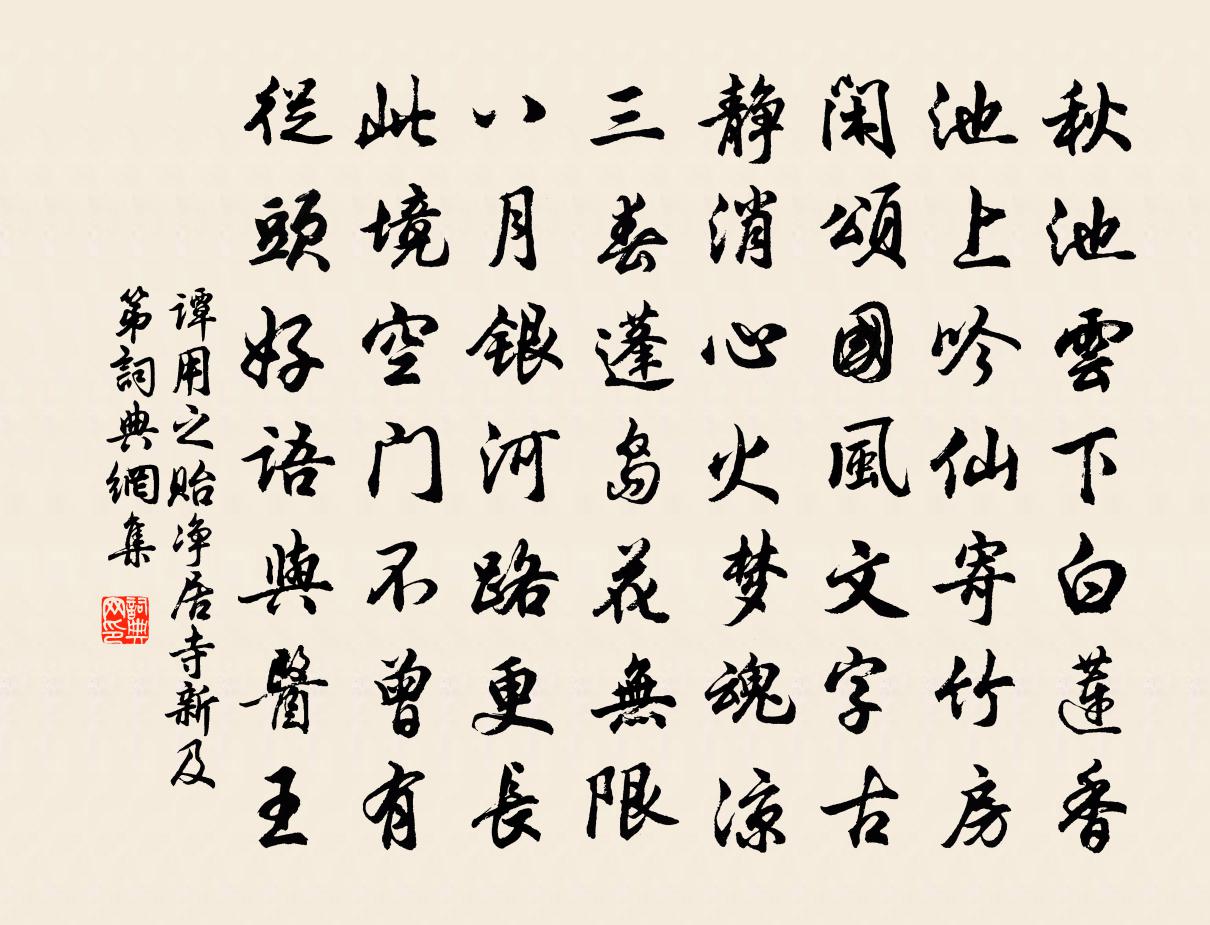 秋池雲下白蓮香
池上吟仙寄竹房
閑頌國風文字古
靜消心火梦魂凉
三春蓬島花無限
八月銀河路更長
此境空门不曾有
從頭好語與醫王
譚用之貽净居寺新及
第詞典網集
詞典
网印